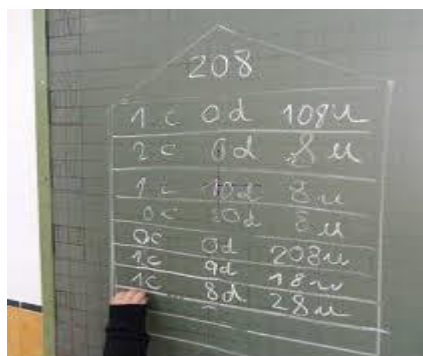 208
1 c 0d 108u
2 c 0d 8 u
1 c 10d 8 u
0c 20d 8 u
0c 0d 208u
1c 9d 18u
1c 8d 28u